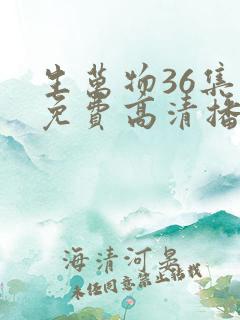 生萬物36集
免費高清播
海清河晏
未经同意禁止转载